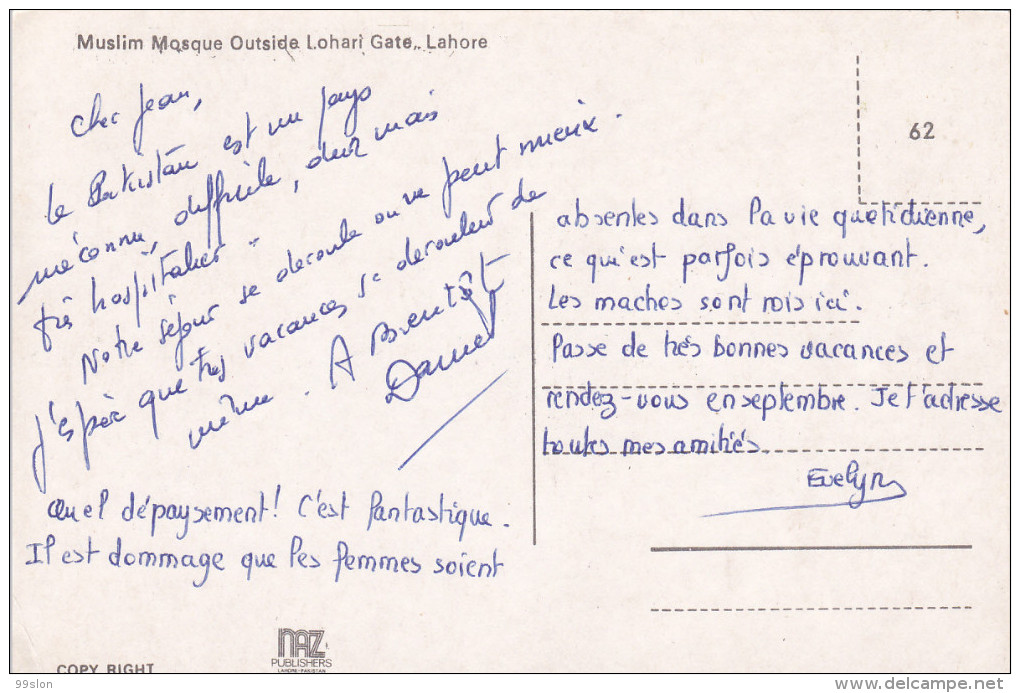 Muslim Mosque Outside Lohari Gate, Lahore
62
Cher Jean,
Le Pakistan est un pays
méconnu, difficile, dur mais
très hospitalier.
Notre séjour se déroule on ne peut mieux.
J'espère que tes vacances se déroulent de
même. A Bientôt
Daniel
Quel dépaysement! C'est fantastique.
Il est dommage que les femmes soient
absentes dans la vie quotidienne,
ce qui est parfois éprouvant.
Les machos sont rois ici.
Passe de très bonnes vacances et
rendez-vous en septembre. Je t'adresse
toutes mes amitiés.
Evelyn
NAZ
PUBLISHERS
LAHORE-PAKISTAN
COPY RIGHT
99slon
delcampe.net